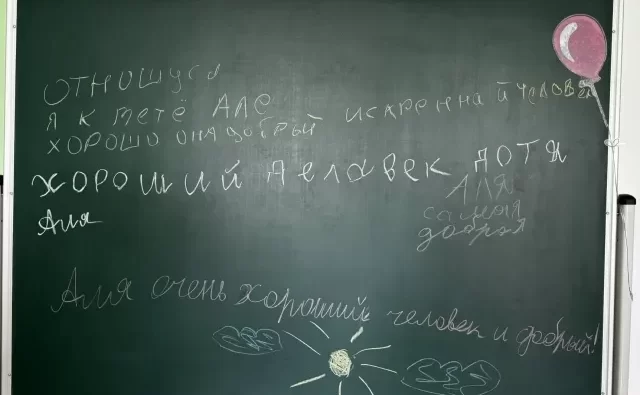 ОТНОШУСЬ
Я К ТЕТЁ АЛЕ ИСКРЕННАЙ ЧЕЛОВЕК
ХОРОШО ОНА ДОБРЫЙ
ХОРОШИЙ ЧЕЛАВЕК ДОТЯ
Аля
АЛЯ
самыя
добрая
Аля очень хороший человек и добрый!